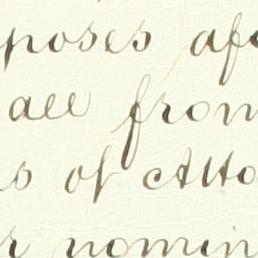 poses afo
all from
s of Atto
r nomin